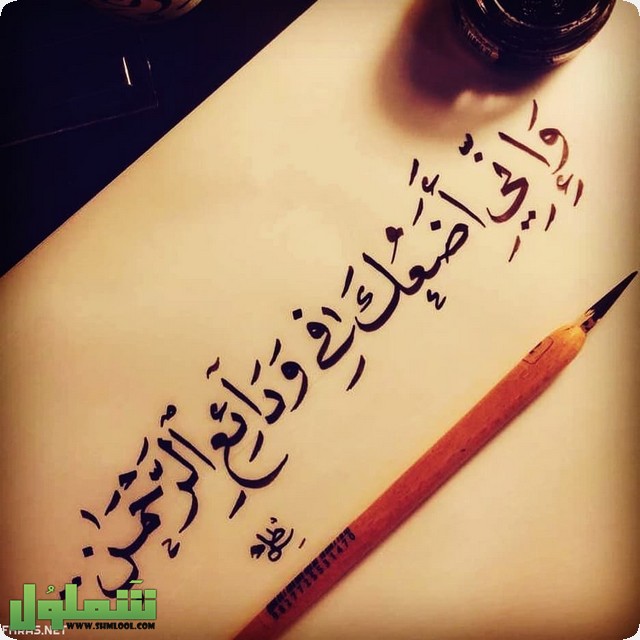 وَإِنِّي أَضَعُكَ فِي وَدَائِعِ الرَّحْمَنِ
شملول
WWW.SHMLOOL.COM